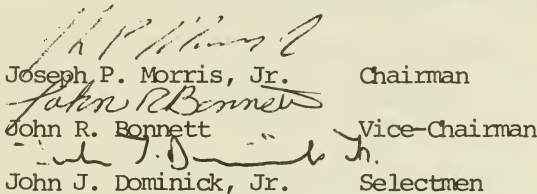 Joseph P. Morris, Jr. Chairman
John R Bonnett
John R. Bonnett Vice-Chairman
J. Dominick Jr.
John J. Dominick, Jr. Selectmen